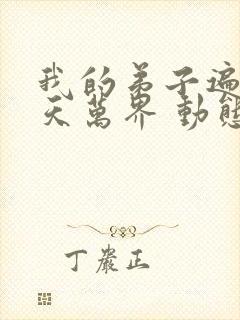 我的弟子遍
天萬界 動態
丁嚴正